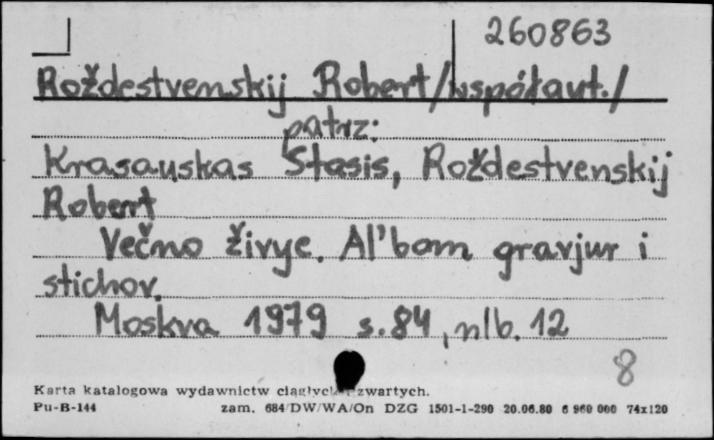 260863
Roždestvenskij Robert/współaut./
patrz:
Krasauskas Stasis, Roždestvenskij
Robert
Večno živye. Al'bom gravjur i
stichov.
Moskva 1979 s. 84, nlb. 12
8
Karta katalogowa wydawnictw ciągłych zwartych.
Pu-B-144 zam. 684/DW/WA/On DZG 1501-1-290 20.06.80 6 960 000 74x120